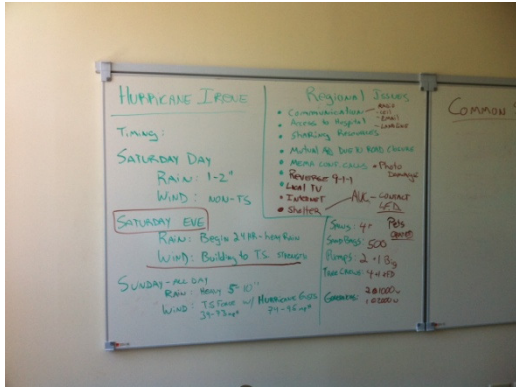 HURRICANE IRENE
Timing:
SATURDAY DAY
RAIN: 1-2"
WIND: NON-TS
SATURDAY EVE
RAIN: Begin 24 HR - heavy Rain
WIND: Building to T.S. STRENGTH
SUNDAY - ALL DAY
RAIN: HEAVY 5-10"
WIND: TS FORCE w/ HURRICANE GUSTS
39-73 mph 74-95 mph
Regional Issues
• Communication - RADIO
- CELL
- EMAIL
- LANDLINE
• Access to Hospital
• Sharing Resources
• Mutual Aid DUE TO ROAD CLOSURE
• MEMA CONF. CALLS
• Photo Damage
• REVERSE 9-1-1
• Local TV
• INTERNET
• Shelter
- CONTACT
Pets
SAWS: 4
SANDBAGS: 500
PUMPS: 2 + 1 Big
TREE CREWS:
GENERATORS:
COMMON